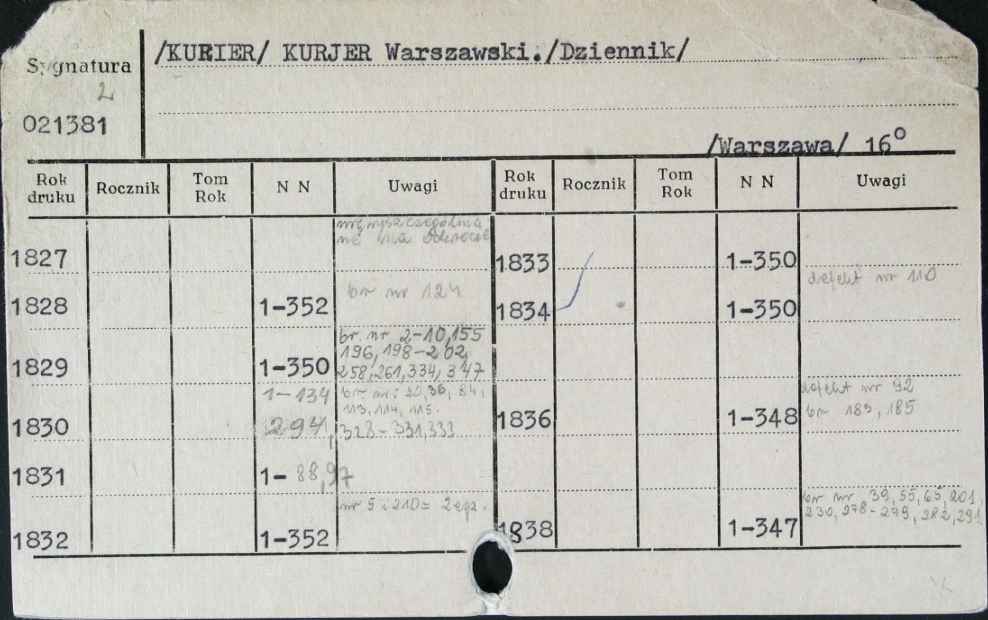 /KURIER/ KURJER Warszawski./Dziennik/
Sygnatura
2
021381
/Warszawa/ 16°
Rok druku Rocznik Tom Rok N N Uwagi Rok druku Rocznik Tom Rok N N Uwagi
1827
1828 1-352 br nr 124
1829 1-350 br. nr 2-10,155
196,198-202,
258,261,334,347
1830 1-134 br nr: 36, 84,
113, 114, 115.
294, 328-331,333
1831 1-88,97
1832 1-352 nr 5 i 210= 2 egz.
1833 1-350
1834 1-350 defekt nr 110
1836 1-348 defekt nr 92
br 183, 185
1838 1-347 br nr 39, 55, 65, 201,
230, 278-279, 282, 291